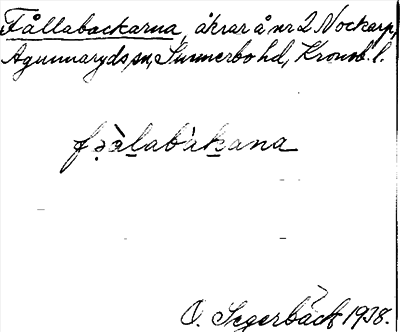 Fållabackarna, åkrar å nr 2 Nockarp,
Agunnaryds sn, Sunnerbo hd, Kronob. l.
fə̀ɷlabàkana
O. Segerbäck 1938.